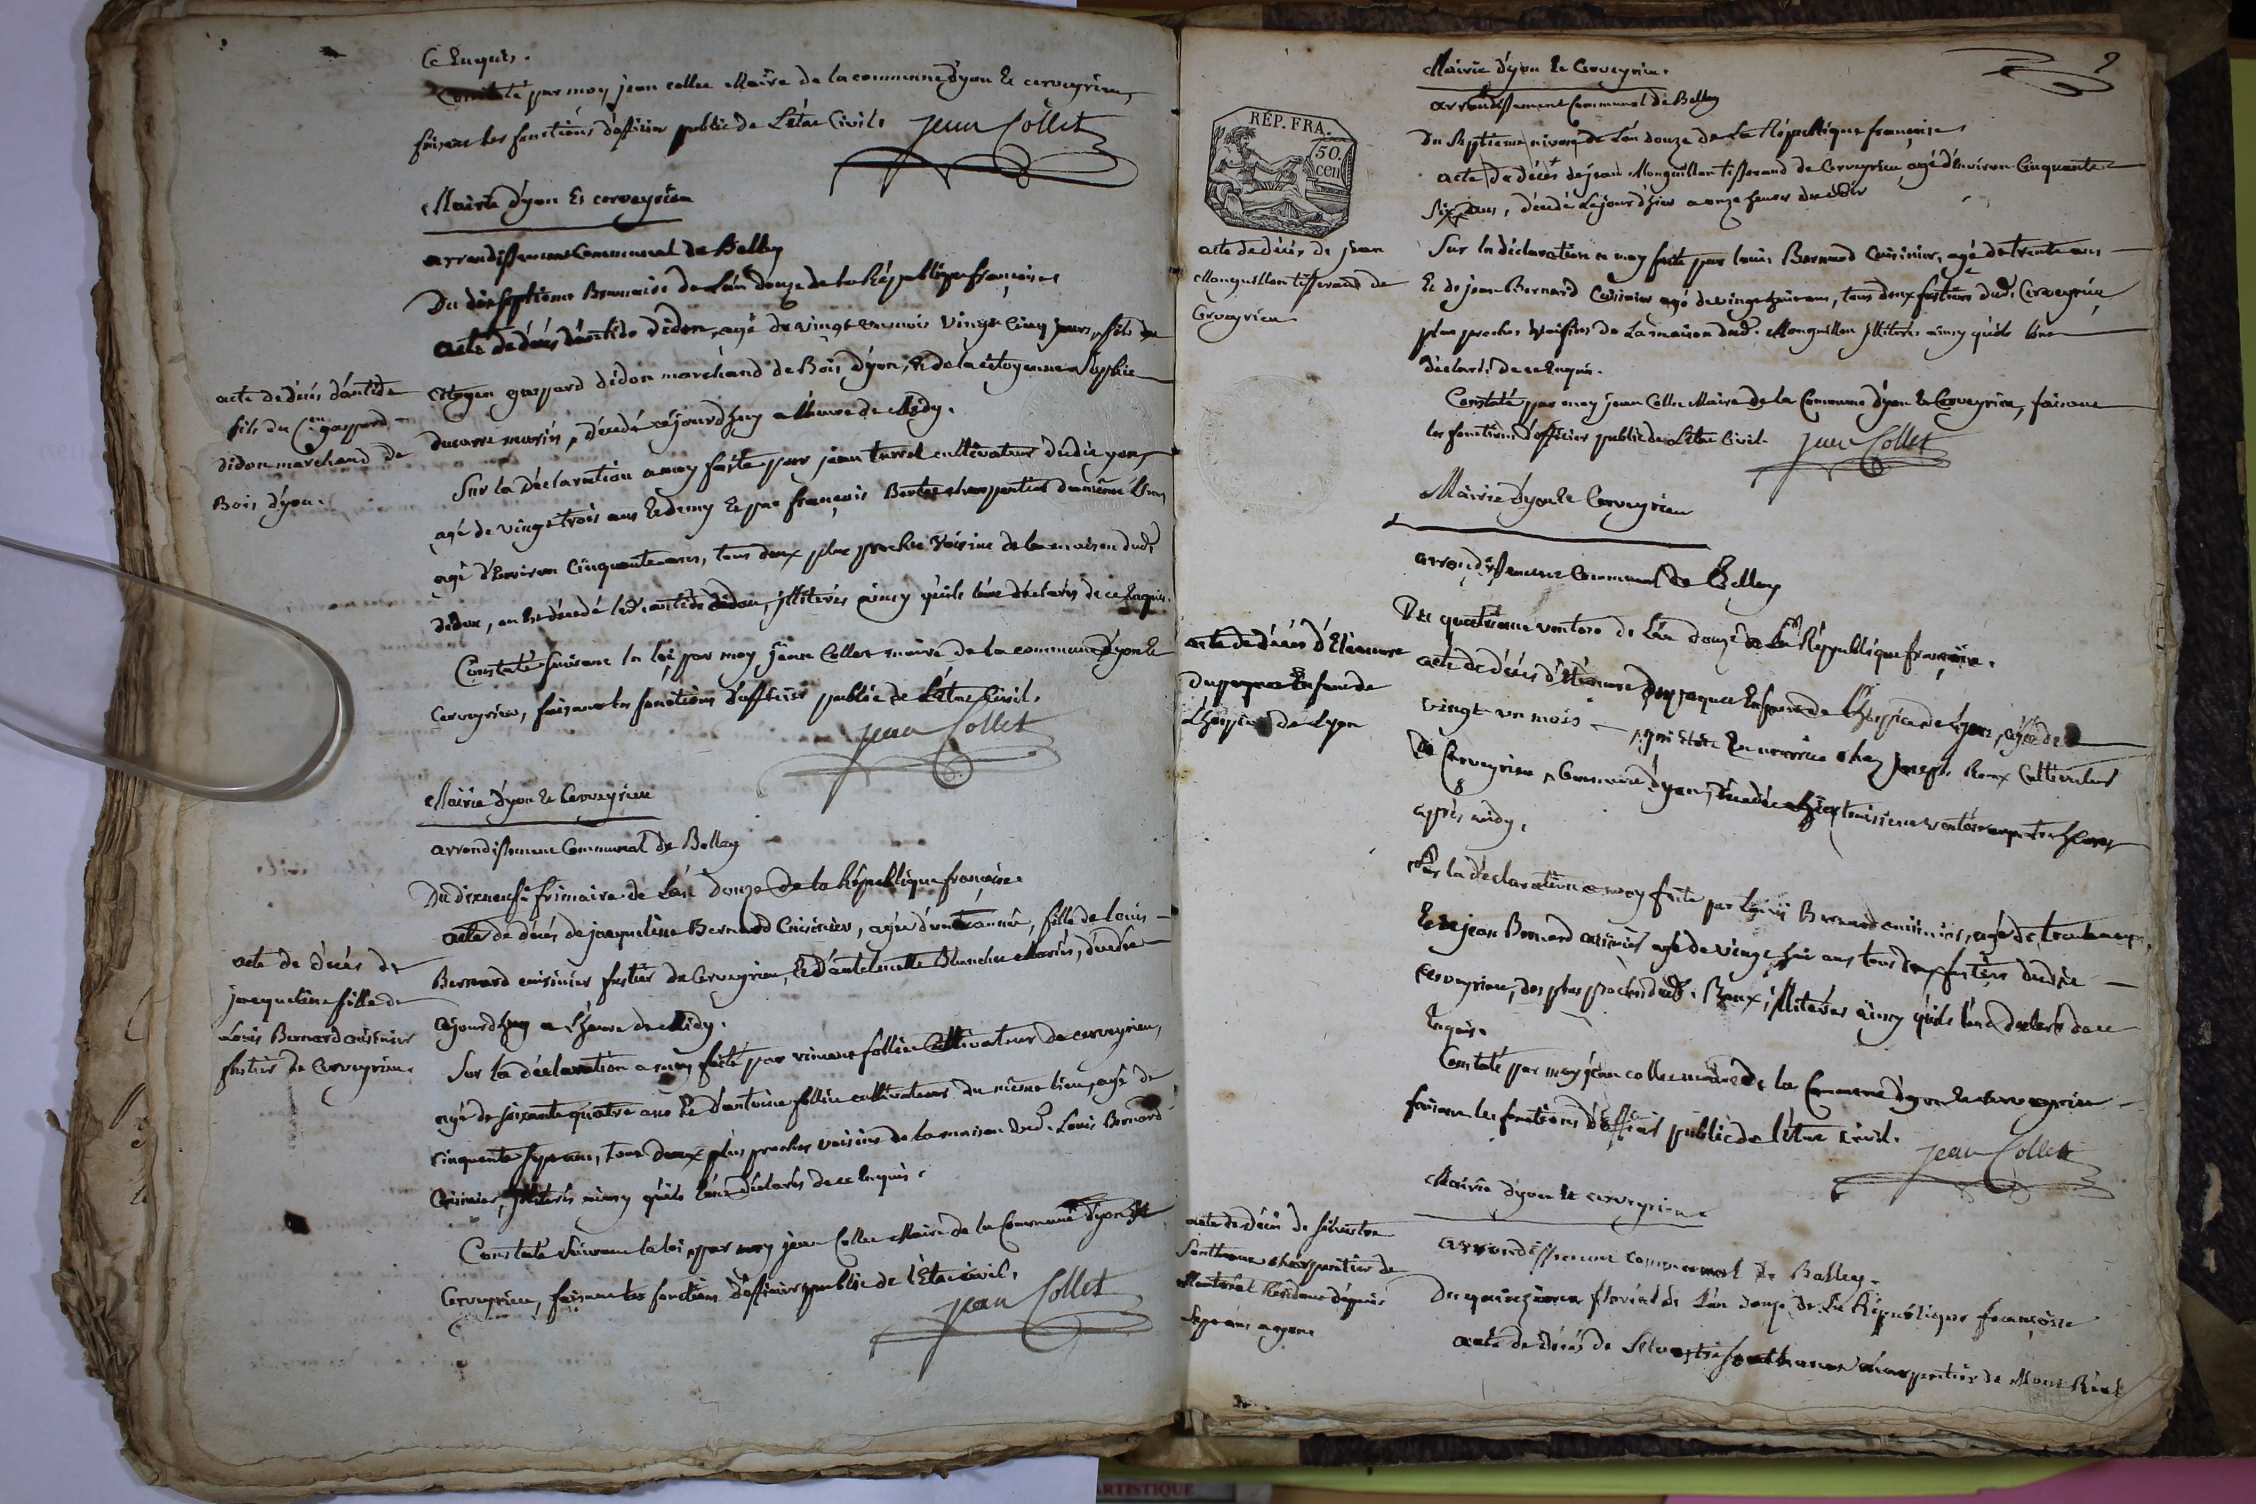 Ce Enquis.
Constaté par moy jean collet Maire de la commune d'yon Et cerveyrieu,
faisant les fonctions d'officier public de L'état Civil. jean Collet
Mairie d'yon Et cerveyrieu
arrondissement Communal de Belley
Du dixseptieme Brumaire de L'an douze de la République françoise
acte de décés d'antide didon, agé de vingt un mois vingt cinq jours, fils du
citoyen gaspard didon marchand de Bois d'yon, Et de la citoyenne Sophie
Ducarre mariés, décédé cejourdhuy a l'heure de Midy.
acte de décés d'antide
fils du C.en gaspard
didon marchand de
Bois d'yon.
Sur la déclaration a moy faite par jean turrel cultivateur dudit yon,
agé de vingt trois ans Et demy Et par françois charpentier du même lieu
agé d'Environ Cinquante ans, tous deux plus proches voisins de la maison dud.
didon, ou Est décédé led. antide didon, jllitérés ainsy qu'ils l'ont déclarés de ce Enquis.
Constaté suivant la loi, par moy jean Collet maire de la commune d'yon Et
Cerveyrieu, faisant les fonctions d'officier public de L'état Civil.
jean Collet
Mairie d'yon Et Cerveyrieu
arrondissement Communal de Belley
Du dixneufe frimaire de L'an Douze de la République françoise.
acte de décés de jacqueline Bernard Cuisinier, agée d'une année, fille de louis
Bernard cuisinier fustier de Cerveyrieu, Et d'antelmette Blanchin Mariés, décédée
cejourdhuy a l'heure de Midy.
acte de décés de
jacqueline fille de
Louis Bernard cuisinier
fustier de Cerveyrieu.
Sur la déclaration a moy faite par vincent follin Cultivateur de cerveyrieu,
agé de soixante quatre ans Et d'antoine follin cultivateur du même lieu, agé de
cinquante sept ans, tous deux plus proches voisins de la maison dud. Louis Bernard
Cuisinier, jllitérés ainsy qu'ils l'ont déclarés de ce Enquis.
Constaté suivant la loi par moy jean Collet Maire de la Commune d'yon Et
Cerveyrieu, faisant les fonctions d'officier public de l'Etat civil.
jean Collet
2
Mairie d'yon Et Cerveyrieu.
arrondissement Communal de Belley
RÉP. FRA.
50.
cen
Du Septieme nivose de L'an douze de La République françoise
acte de décés de jean Monguillon tisserand de Cerveyrieu, agé d'Environ Cinquante
Six ans, décédé Lejourdhier a onze heures du soir
acte de décés de jean
Monguillon tisserand de
Cerveyrieu
Sur la déclaration a moy faite par louis Bernard Cuisinier, agé de trente ans
Et de jean Bernard Cuisinier agé de vingt huit ans, tous deux fustiers dud. Cerveyrieu
plus proches voisins de La maison dud. Monguillon jllitérés ainsy qu'ils l'ont
déclarés de ce Enquis.
Constaté par moy jean Collet Maire de la Commune d'yon Et Cerveyrieu, faisant
les fonctions d'officier public de L'état Civil. jean Collet
Mairie d'yon Et Cerveyrieu
arrondissement Communal de Belley
Du quatrieme ventose de L'an douze de La République françoise.
acte de décés d'Etienne Dupaquet Enfant de l'hospice de Lyon, agé de
vingt un mois qui étoit En nourrice chez joseph Roux Cultivateur
de Cerveyrieu, Commune d'yon, décédé hier troisieme ventose a heures
après midy.
acte de décés d'Etienne
Dupaquet Enfant de
L'hospice de Lyon
Sur la déclaration a moy faite par Louis Bernard cuisinier, agé de trente ans,
Et de jean Bernard cuisinier agé de vingt huit ans tous deux fustiers dudit
Cerveyrieu, des plus proches dud. Roux, jllitérés ainsy qu'ils l'ont déclarés de ce
Enquis.
Constaté par moy jean collet maire de la Commune d'yon Et cerveyrieu
faisant les fonctions d'officier public de l'état civil.
jean Collet
Mairie d'yon Et cerveyrieu
arrondissement communal de Belley.
Du quinzieme floréal de L'an douze de La République françoise
acte de décés de Silvestre charpentier de Mont Réal
acte de décés de Silvestre
charpentier de
Montréal Résidant dépuis
Sept ans a yon
ARTISTIQUE